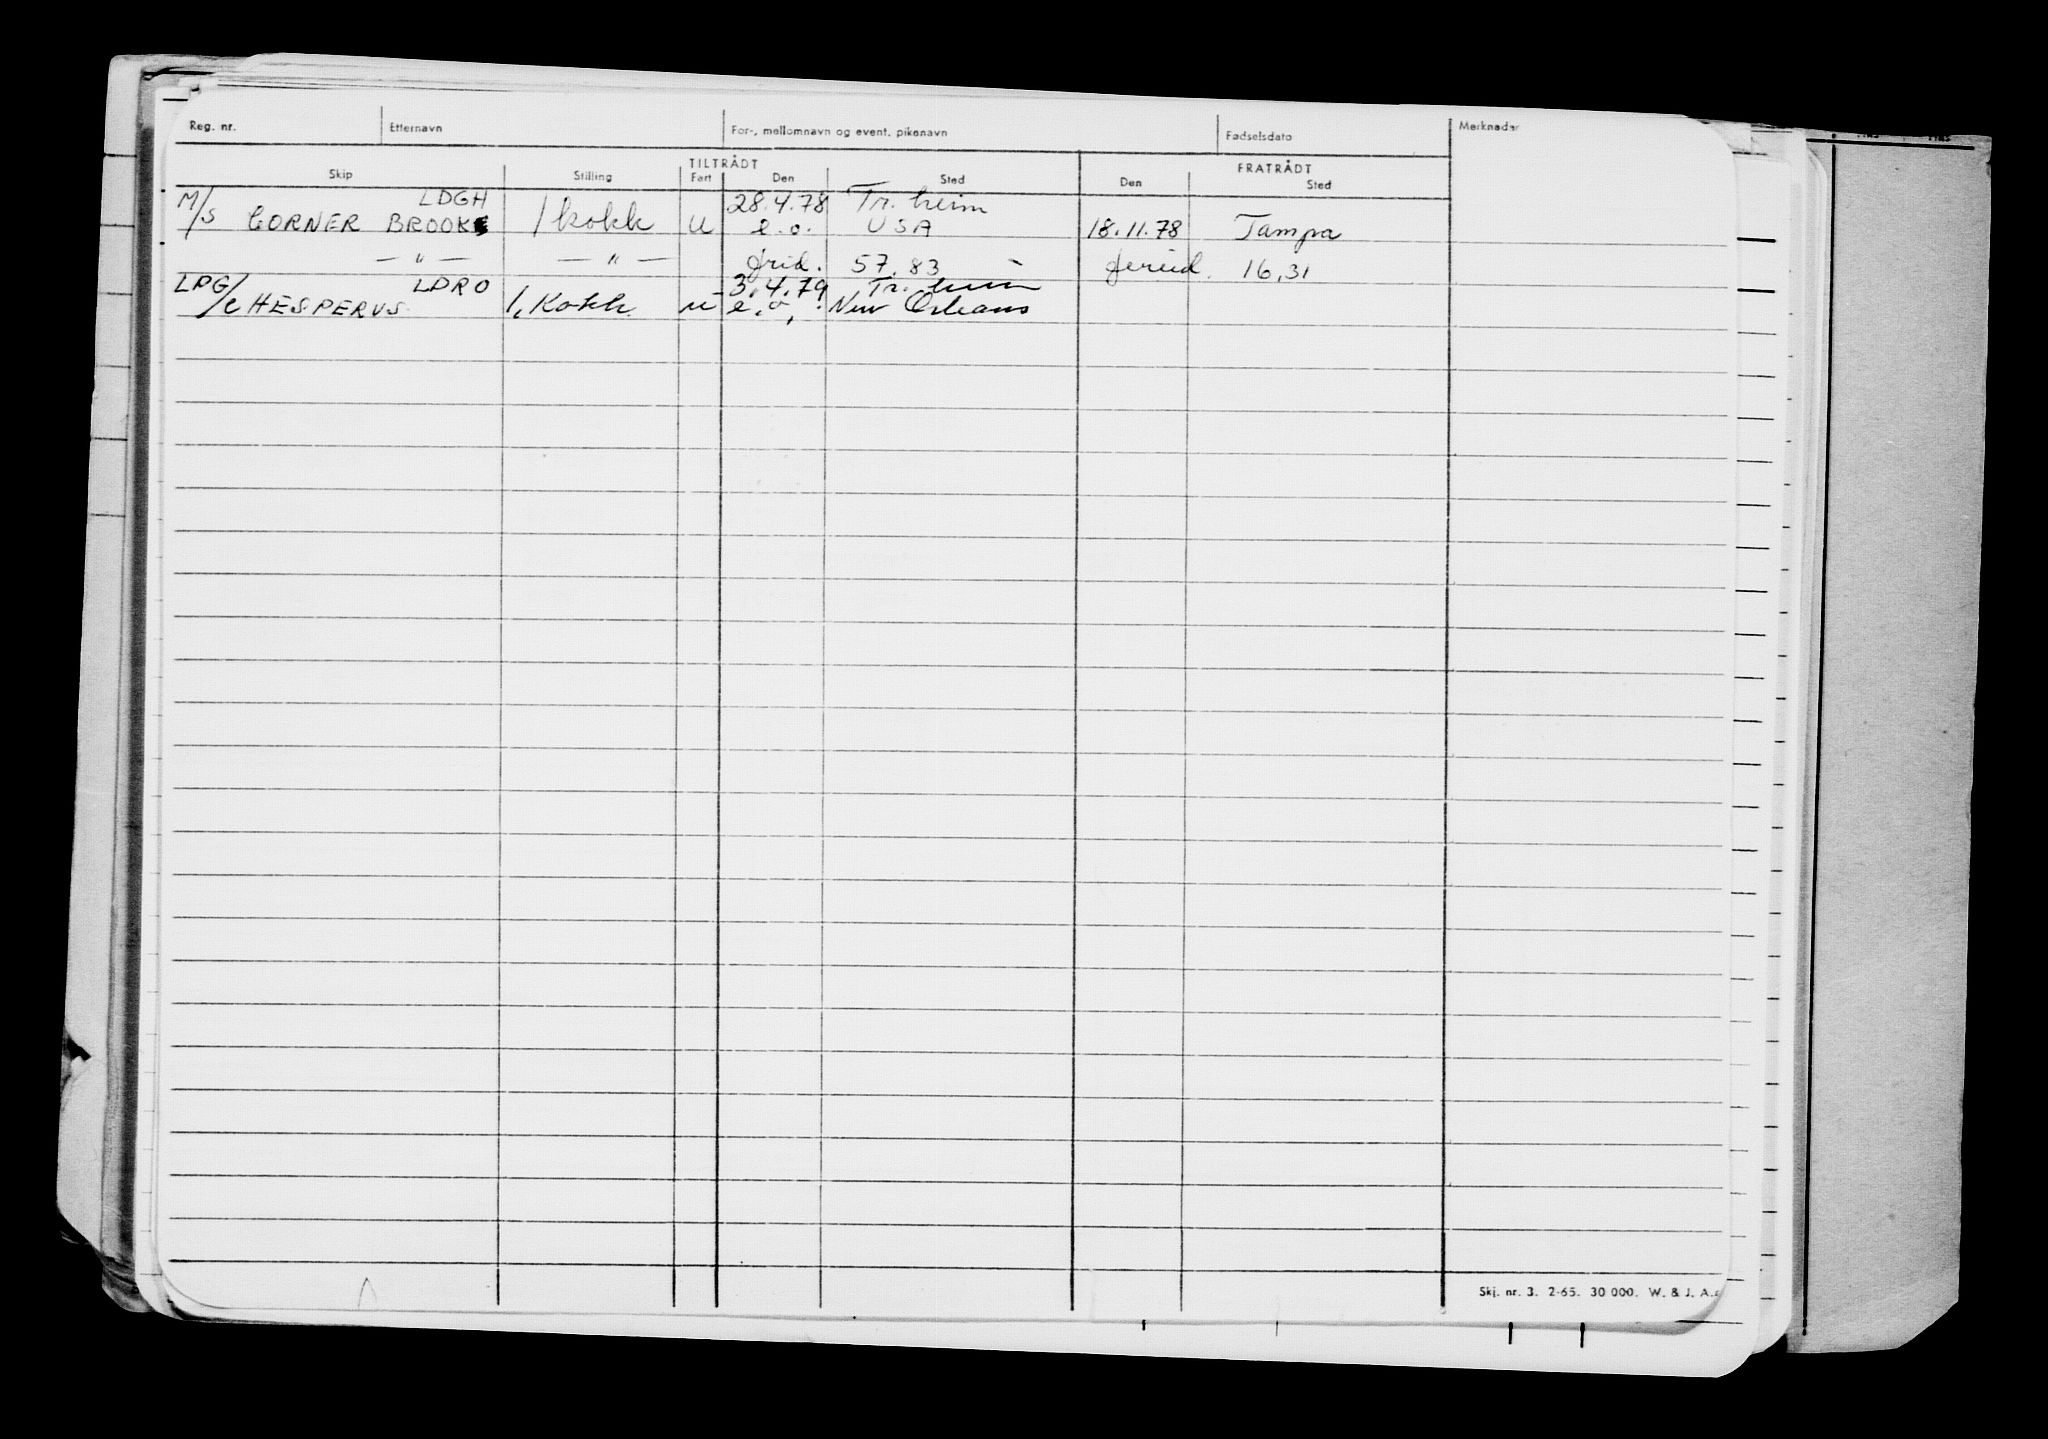 Reg. nr. Etternavn For-, mellomnavn og event. pikenavn Fødselsdato Merknader
TILTRÅDT FRATRÅDT
Skip Stilling Fart Den Sted Den Sted
LDGH 28.4.78 Tr.heim
M/S CORNER BROOK 1 kokk U e.o. USA 18.11.78 Tampa
— " — — " — frid. 57,83 feried. 16,31
LPG/C LDRO 3.4.79 Tr.heim
HESPERUS 1. Kokk u e.o. New Orleans
Skj. nr. 3. 2-65. 30 000. W. & J. A.s